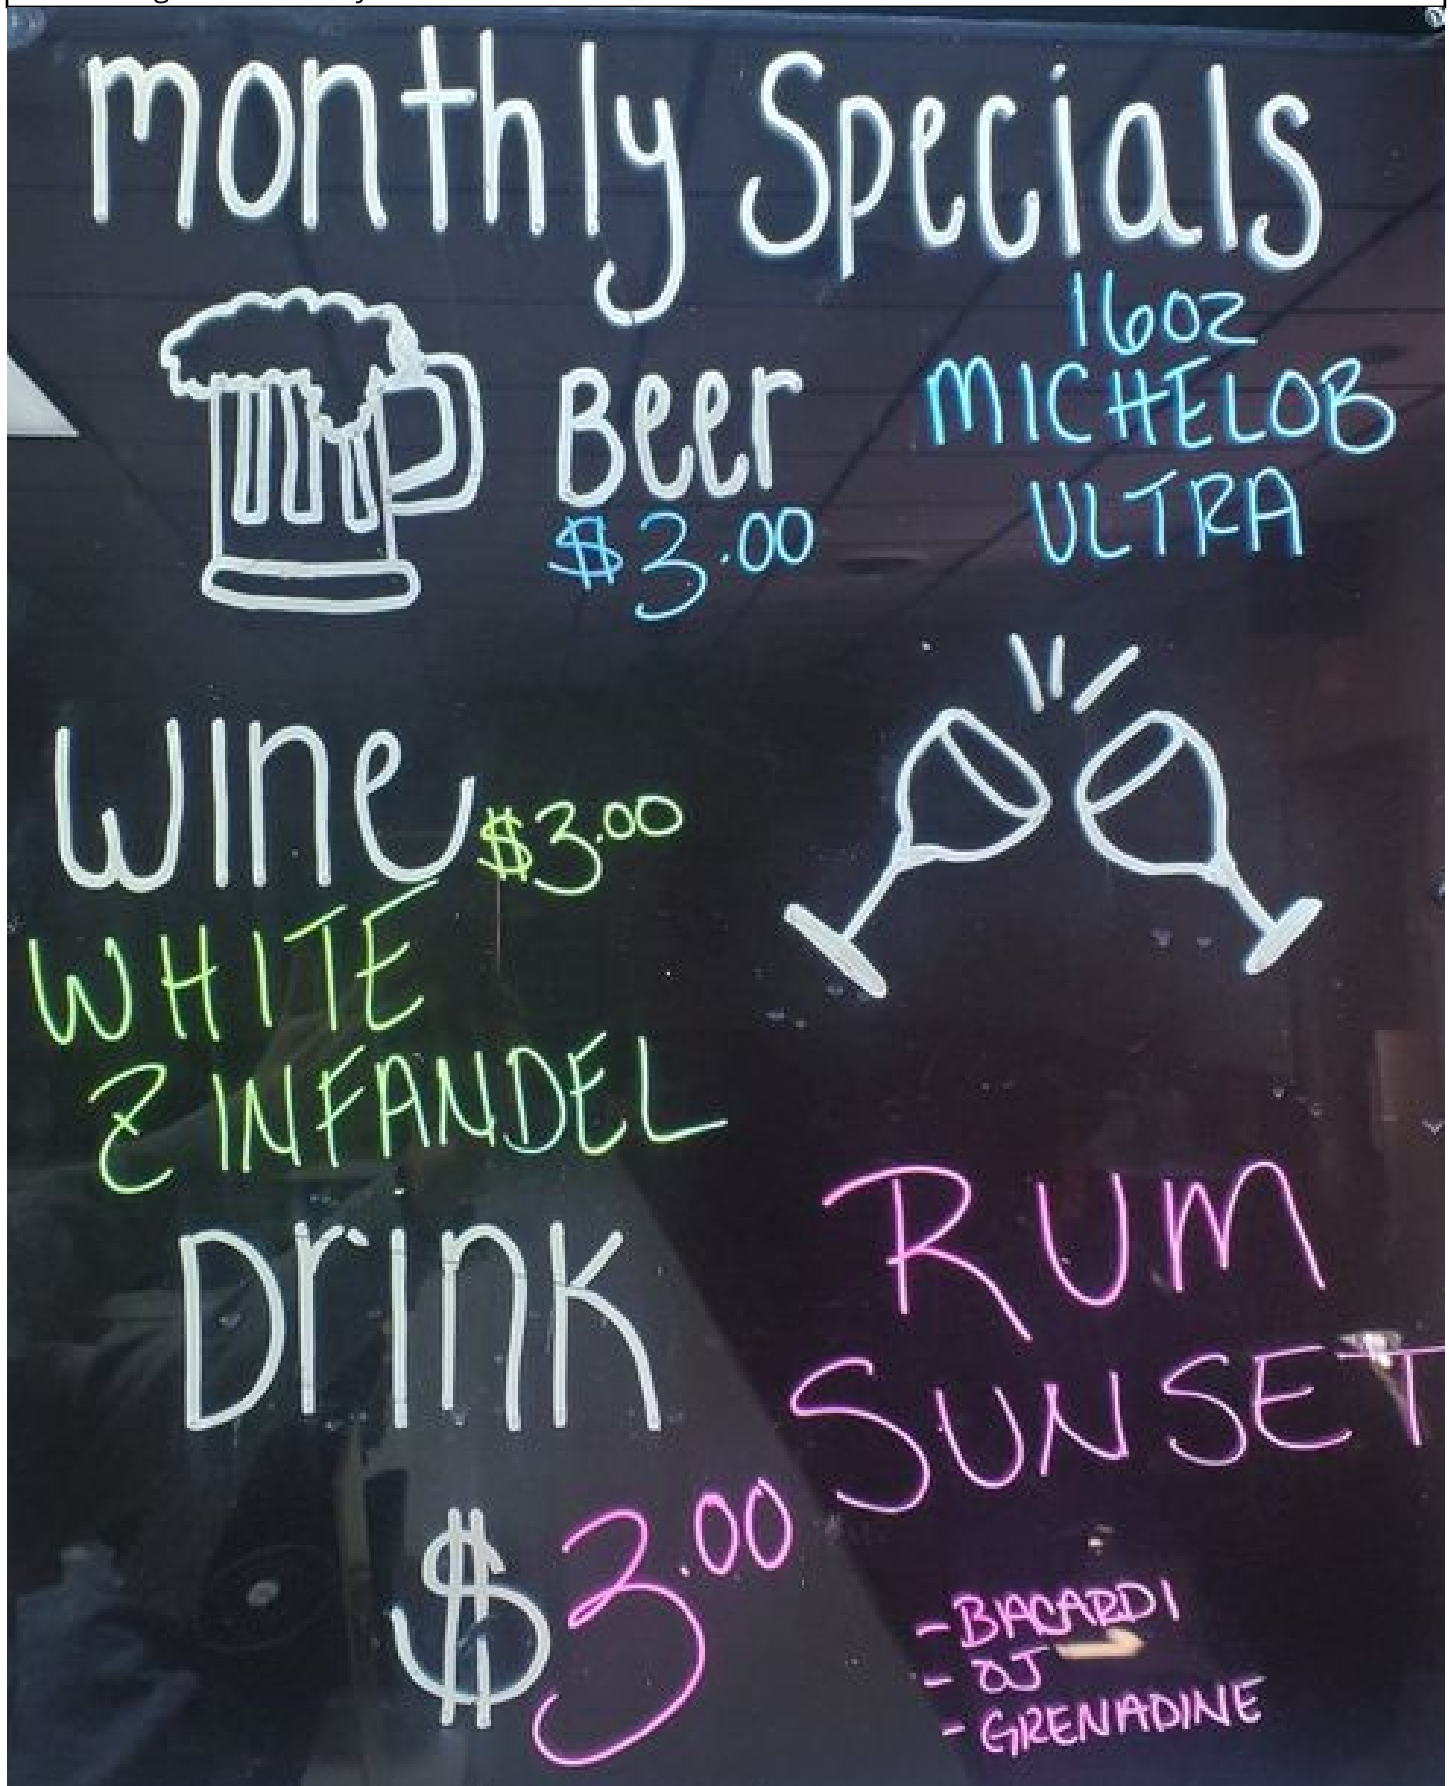 monthly Specials
Beer
$3.00
16oz
MICHELOB
ULTRA
Wine $3.00
WHITE
ZINFANDEL
Drink
$3.00
RUM
SUNSET
- BACARDI
- OJ
- GRENADINE